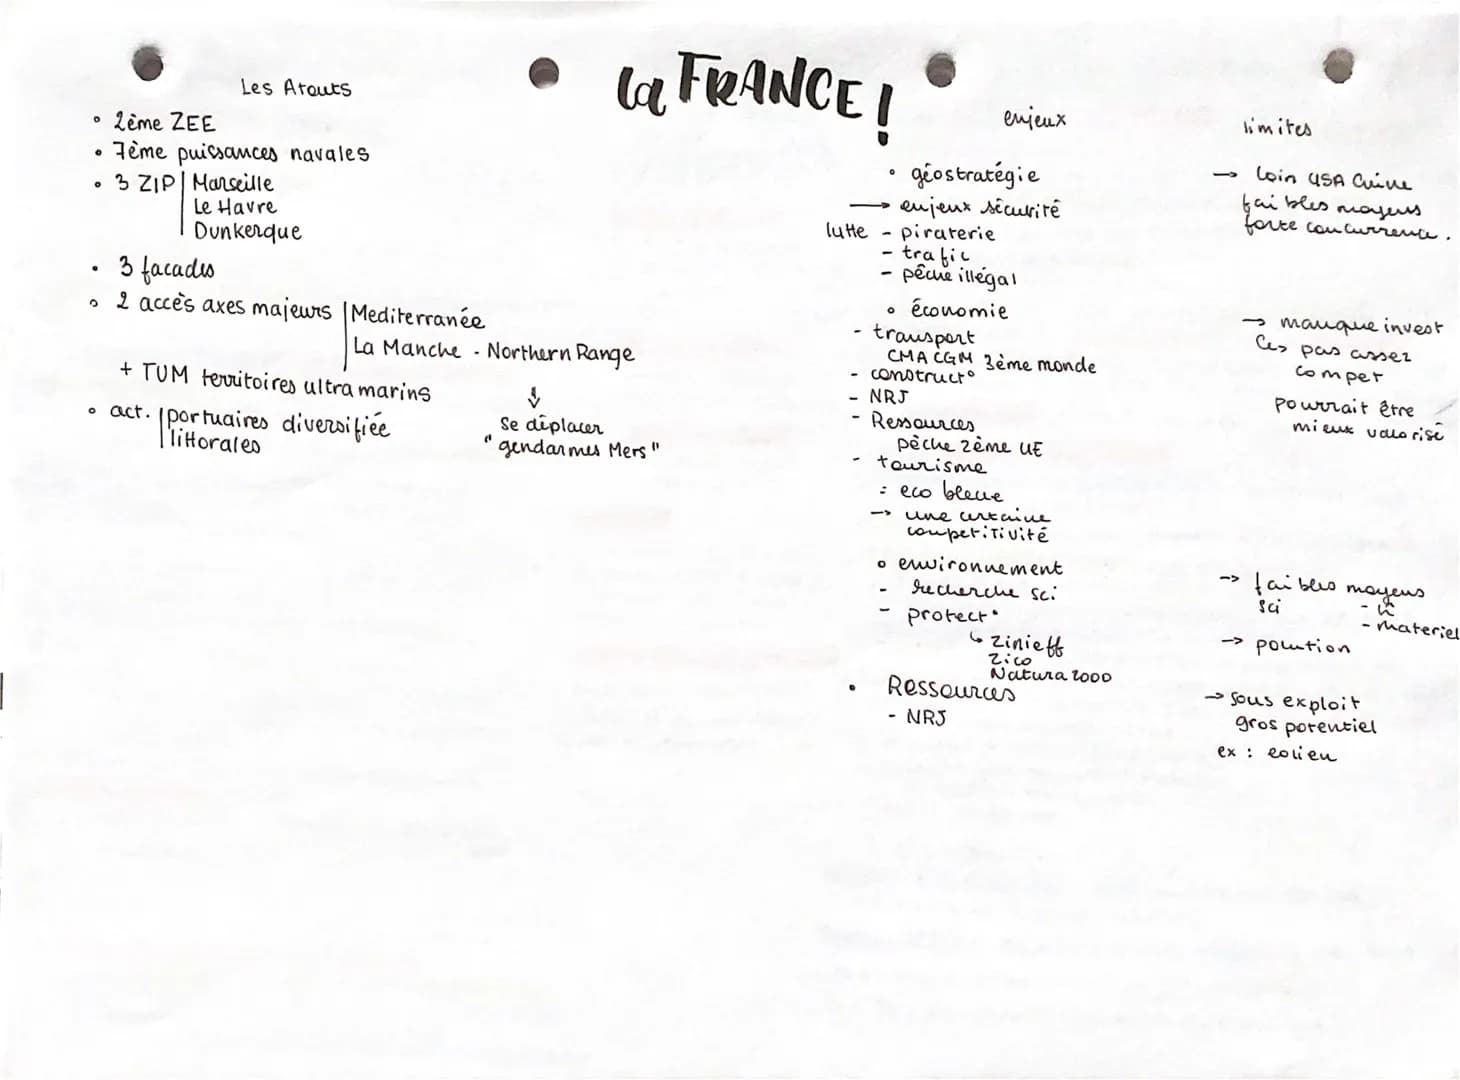 la FRANCE !
Les Atouts
• 2ème ZEE
• 7ème puissances navales
• 3 ZIP | Marseille
Le Havre
Dunkerque
• 3 facades
• 2 accès axes majeurs | Mediterranée
La Manche - Northern Range
+ TUM territoires ultra marins
se déplacer
"gendarmes Mers"
• act. | portuaires diversifiée
littorales
enjeux
• géostratégie
→ enjeux sécurité
lutte - piraterie
- trafic
- pêche illégal
• économie
- transport
CMA CGM 3ème monde
- construct°
- NRJ
- Ressources
pèche 2ème UE
- tourisme
= eco bleue
→ une certaine
competitivité
• environnement
- recherche sci
- protect°
↳ Zinieff
Zico
Natura 2000
• Ressources
- NRJ
limites
→ loin USA Chine
faibles moyens
forte concurrence.
→ manque invest
↳ pas assez
compet
pourrait être
mieux valorisé
→ faibles moyens
sci
- materiel
→ polution
→ sous exploit
gros potentiel
ex : eolien